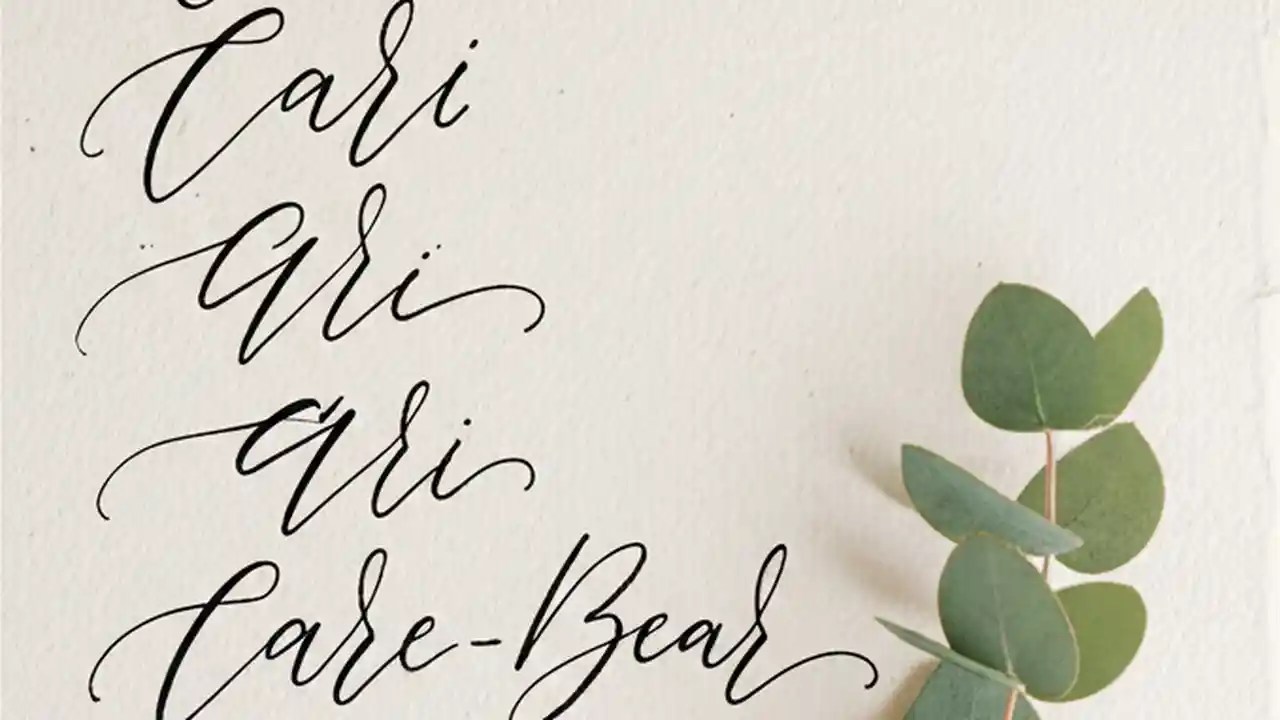 Cari
Ari
ari
Care-Bear